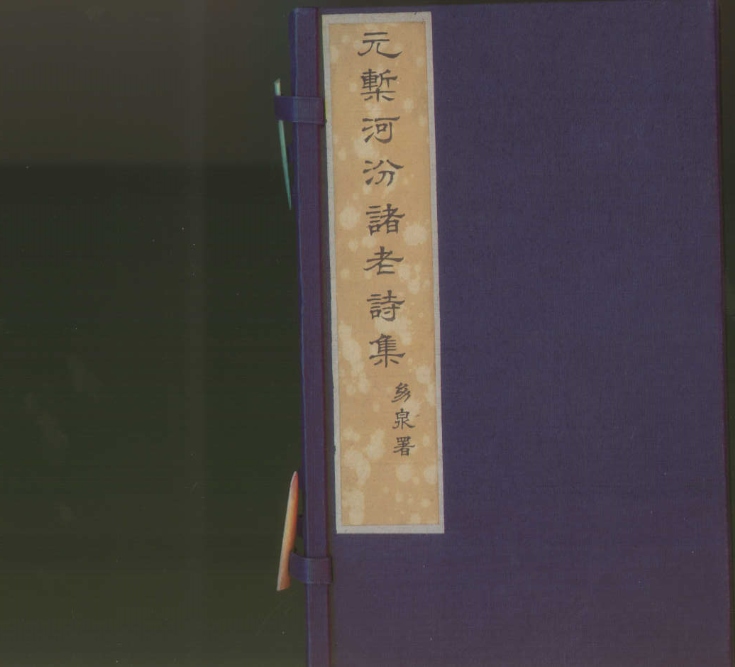 元槧河汾諸老詩集
泉署